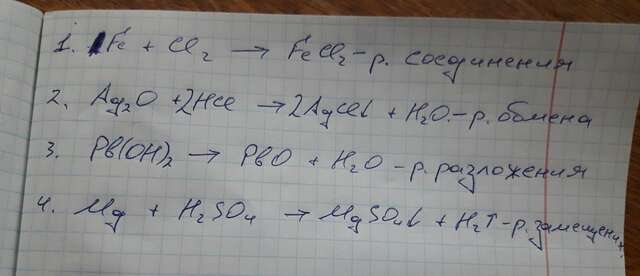 1. Fe + Cl₂ → FeCl₂ - р. соединения
2. Ag₂O + 2HCl → 2AgCl↓ + H₂O - р. обмена
3. Pb(OH)₂ → PbO + H₂O - р. разложения
4. Mg + H₂SO₄ → MgSO₄↓ + H₂↑ - р. замещения